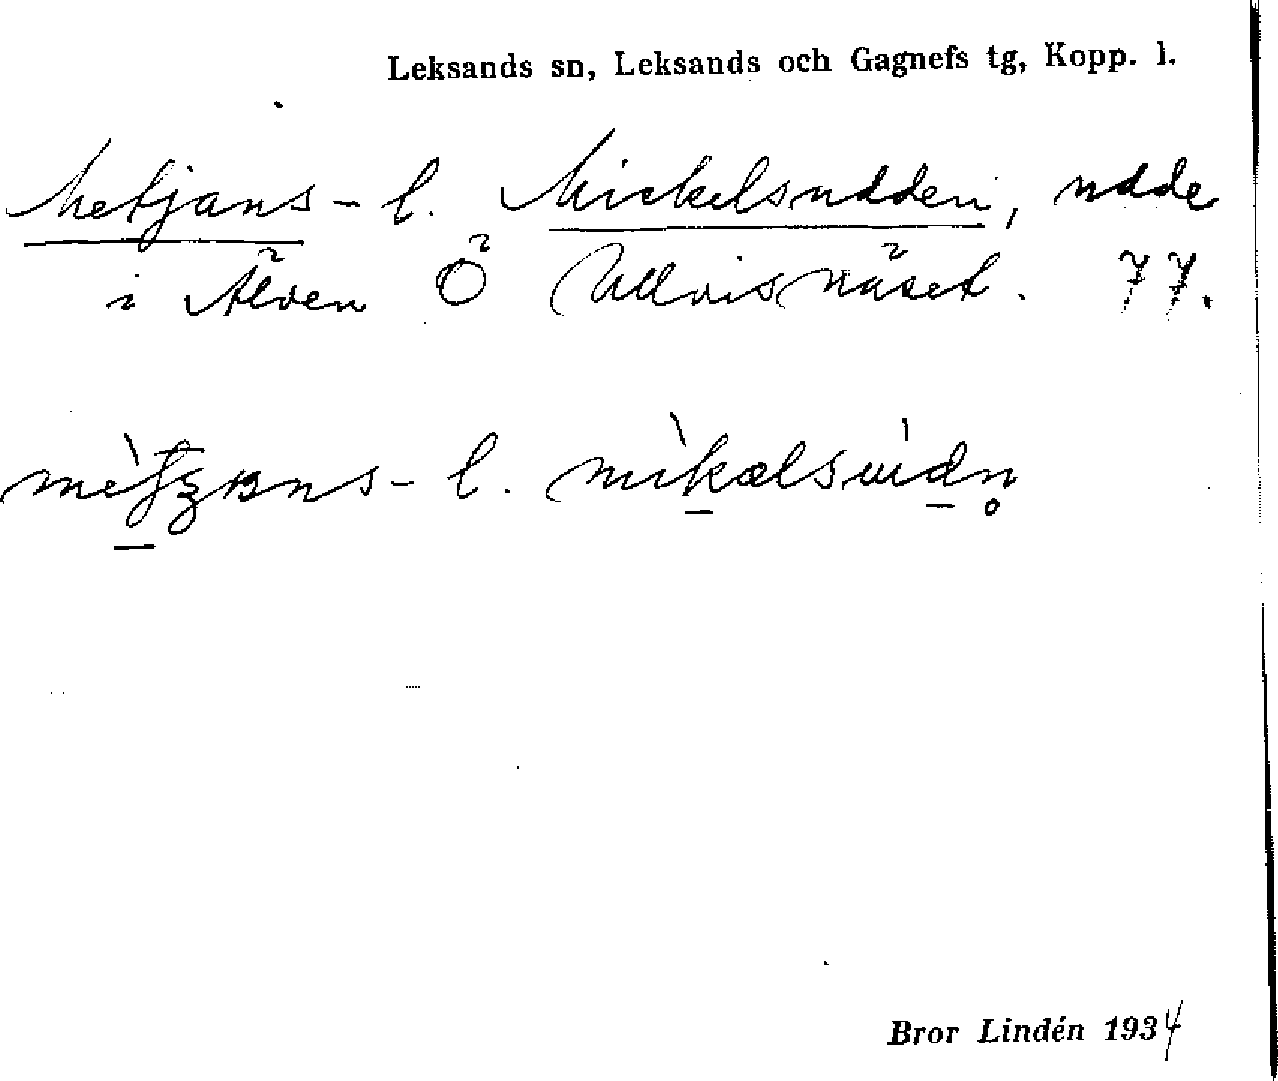 Leksands sn, Leksands och Gagnefs tg, Kopp. l.
Metjans- l. Mickelsudden, udde
i Älven Ö Ullvisnäset. 77.
l.
Bror Lindén 1934